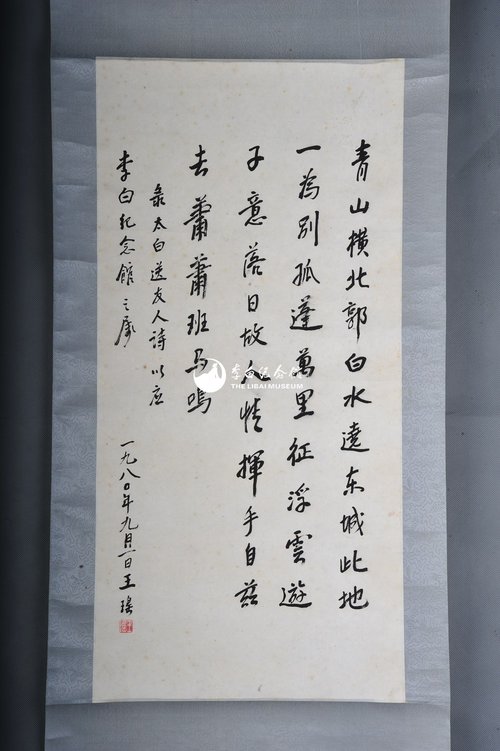 青山横北郭白水遶东城此地
一為别孤蓬萬里征浮雲遊
子意落日故人情揮手自兹
去蕭蕭班马鳴
录太白送友人詩以应
李白纪念館之属
一九八〇年九月一日王瑶
李白纪念馆
THE LIBAI MUSEUM